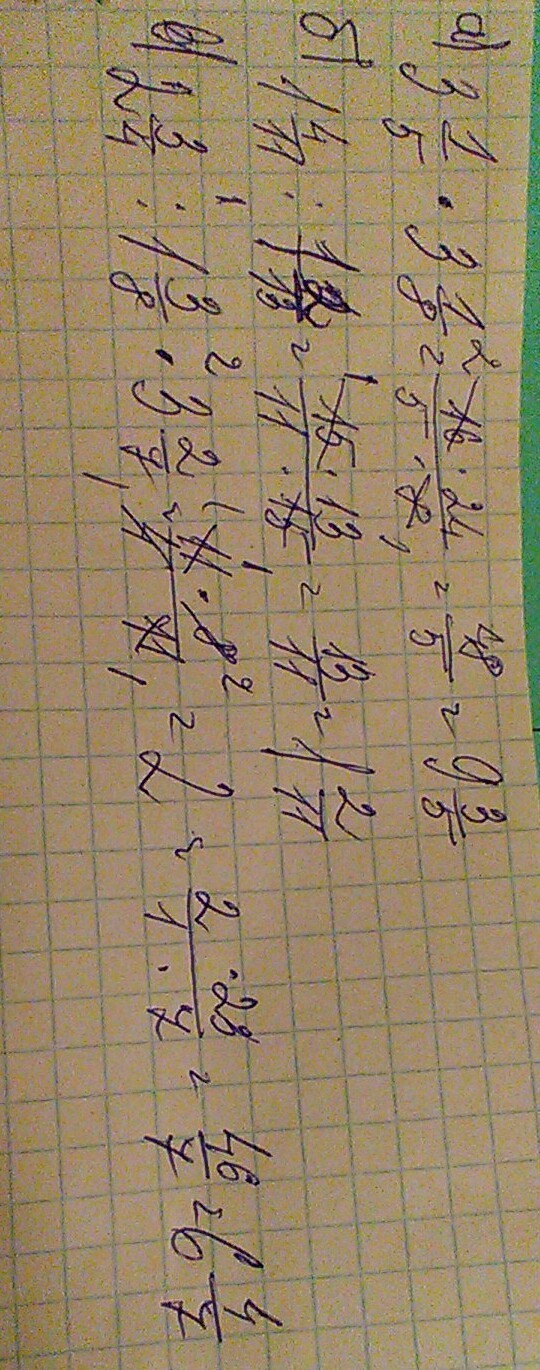 а) 3 1/5 · 3 1/8 = 16 2 · 24 / 5 · 8 1 = 48/5 = 9 3/5
б) 1 4/11 : 1 2/13 = 15 1 · 13 / 11 · 15 1 = 13/11 = 1 2/11
в) 2 3/4 : 1 3/8 · 3 2/7 = 11 1 · 8 2 / 4 1 · 11 1 = 2 = 2 · 23 / 1 · 7 = 46/7 = 6 4/7